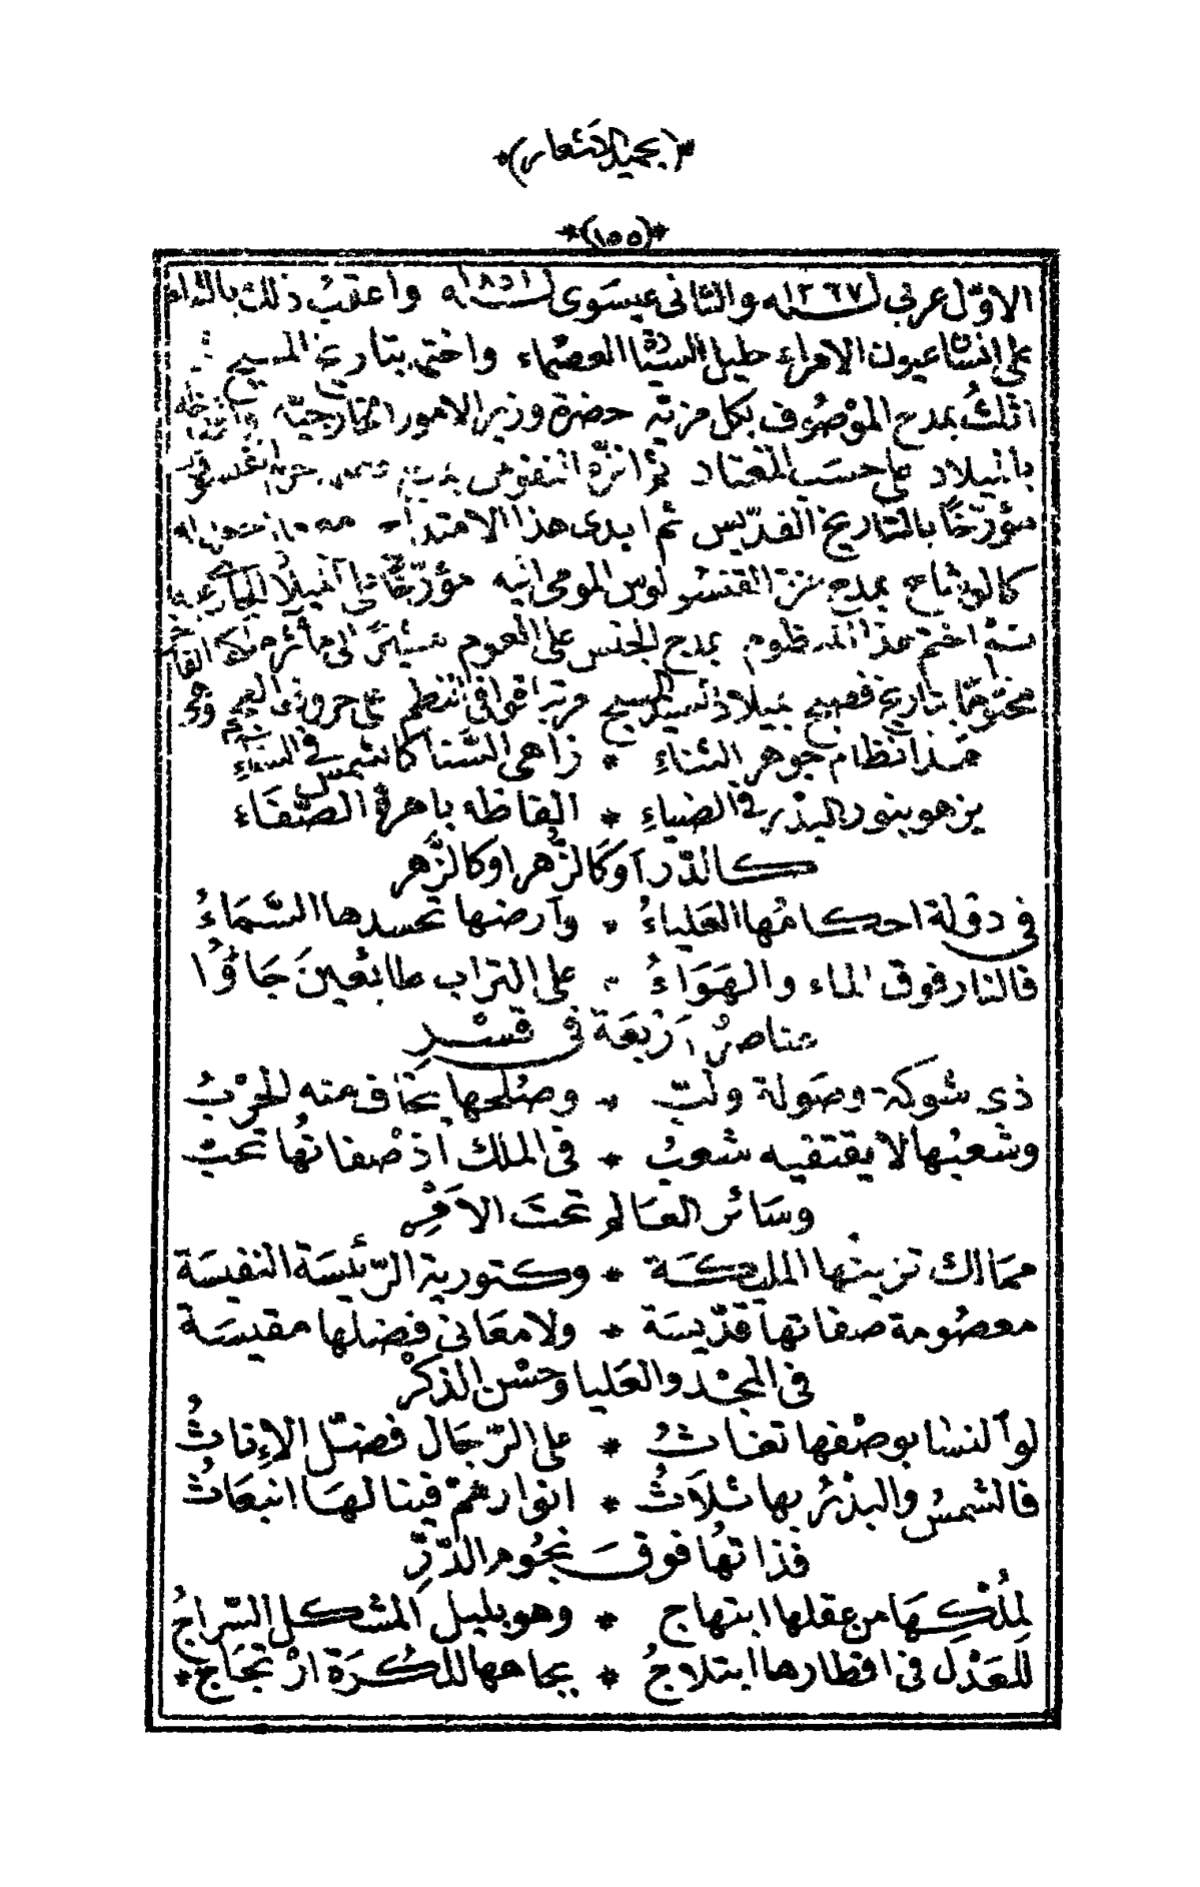 *(بحميد الاشعار)*
*(١٥٥)*
الاوّل عربى ١٢٦٧ والثانى عيسوى ١٨٥١ واعقب ذلك بالثناء
على انشا عيون الامراء حليل الشيا العصماء واختم بتاريخ المسيح
اثلث بمدح الموصوف بكل مزيّه حضرة وزير الامور الخارجيّه
بالميلاد على حسب المعتاد ثم انزّه النفوس
مؤرّخًا بالتاريخ القدّيس ثم ابدى هذا الامتداح
كالوشاح بمدح القنسلوس المومى اليه مؤرّخًا
اختم هذا المنظوم بمدح الجنس على العموم مشيرًا الى مآثر
مختومًا بتاريخ فصيح بميلاد السيد المسيح مرتبا قوافى النظم على حروف
هذا نظام جوهر الثناءِ * زاهى السّنا كالشمس فى السماءِ
يزهو بنور البدر فى الضياءِ * الفاظه باهرة الصّفَاء
كالدّر اَوكَالزُّهر اوكالزَّهر
فى دولة احكامُها العَلياءُ * وآرضها تحسدها السَّمَاءُ
فالنار فوق الماء والهَوَاءُ * على التراب طائعينَ جَاؤُا
عناصرٌ اَرْبَعَة فى قسْرِ
ذى شوكة وصَولة ولُبّ * وصُلحها يخاف منه الحَرْبُ
وشعبُها لا يقتفيه شعبُ * فى الملك اذ صفاتُها تحبّ
وسَائر العَالم تحتَ الاَمْرِ
ممَالك تزينُها المليكَة * وكتورية الرّئيسَة النفيسَة
معصُومة صفاتها قدّيسَة * ولا معَانى فضلها مقيسَة
فى المجْد والعَليا وحسْن الذكْر
لو النسَا بوصْفها تغاثُ * على الرّجَال فضّل الاِناثُ
فالشمسُ والبدْرُ بها ثلاَثُ * انوارهُمْ فينا لهَا انبعَاثُ
فذاتهَا فوقَ نجُوم الدّرِّ
لِمُلْكِهَا من عقلها ابتهاج * وهو بليل المشكل السّراجُ
للعَدْل فى اقطارها ابتلاجُ * بجاهها للكُرَة ارْتجَاجُ*